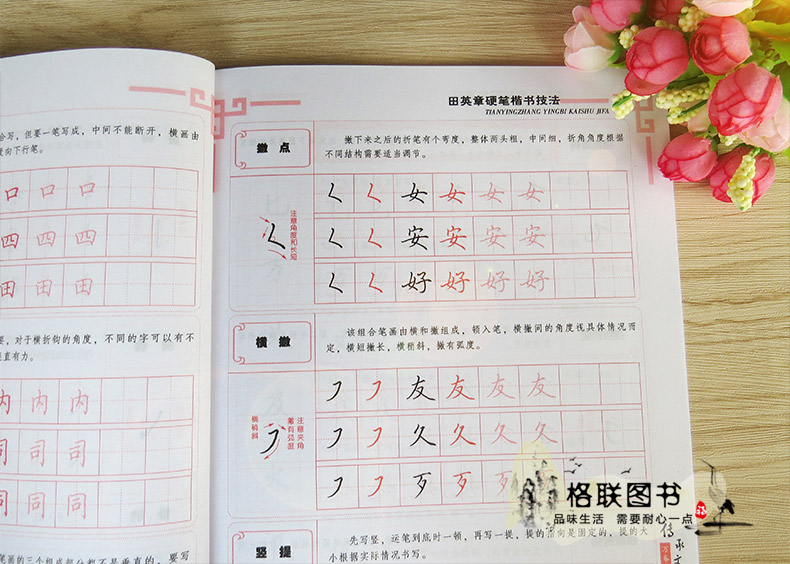 合写，但要一笔写成，中间不能断开，横画由
向下行笔。
口 口 口
四 四 四
田 田 田
要，对于横折钩的角度，不同的字可以有不
直有力。
内 内 内
司 司 司
同 同 同
笔画的三个组成部分都不是垂直的，要写
田英章硬笔楷书技法
TIANYINGZHANG YINGBI KAISHU JIFA
撇点
撇下来之后的折笔有个弯度，整体两头粗，中间细，折角角度根据
不同结构需要适当调节。
注意角度和长短
𡿨 𡿨 女 女 女 女
𡿨 𡿨 安 安 安 安
𡿨 𡿨 好 好 好 好
横撇
该组合笔画由横和撇组成，顿入笔，横撇间的角度视具体情况而
定，横短撇长，横稍斜，撇有弧度。
横稍斜
注意夹角
撇有弧度
㇇ ㇇ 友 友 友 友
㇇ ㇇ 久 久 久 久
㇇ ㇇ 歹 歹 歹
竖提
先写竖，运笔到底时一顿，再写一提，提的指向是固定的，提的大
小根据实际情况书写。
格联图书
品味生活 需要耐心一点
传承文